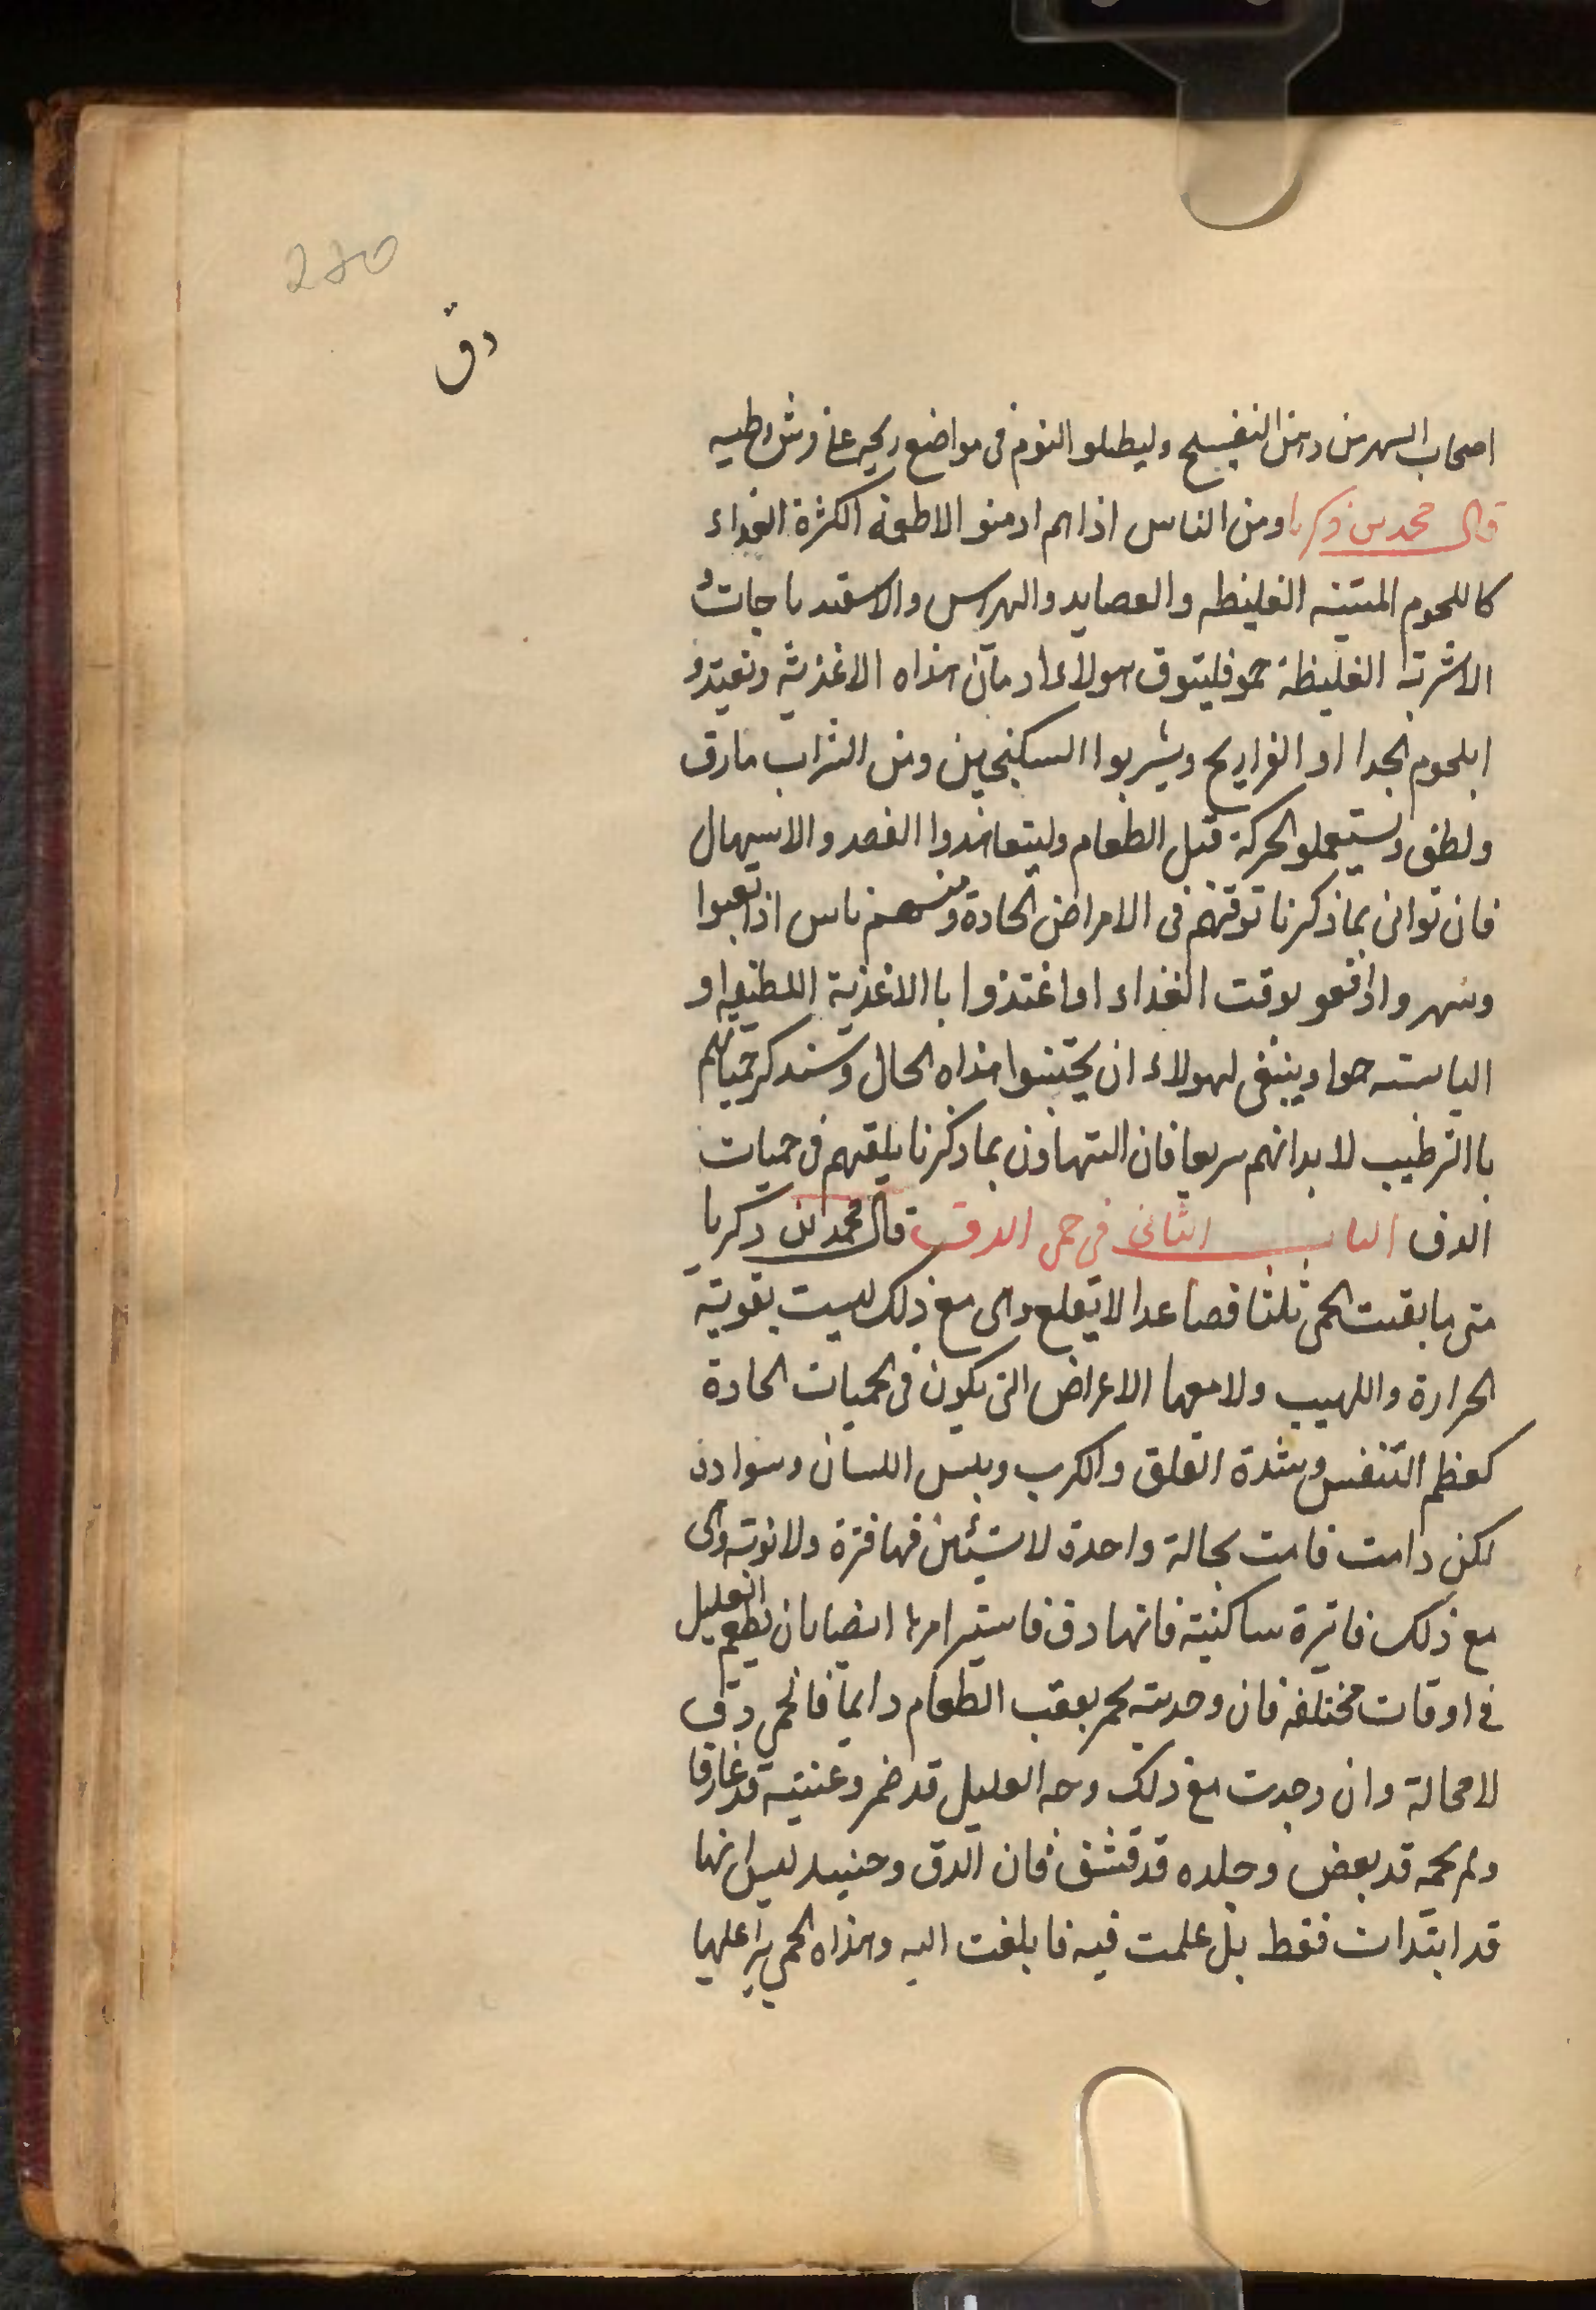 280
دق
اصحاب السهر من دهن البنفسج وليطلو النوم فى مواضع ريحيه على فرش وطيه
قال محمد بن زكريا ومن الناس اذا هم ادمنو الاطعمة الكثرة الغداء
كاللحوم المتينه الغليظه والعصايد والهراس والاسفندباجات و
الاشربة الغليظة حمو فليتوق هولاء ادمان هذاه الاغذية وتغيتدو
ابلحوم الجدا او الفراريح ويشربوا السكنجبين ومن الشراب مارق
ولطف ويستعملو الحركة قبل الطعام وليتعاهدوا الفصد والاسهال
فان توانى بماذكرنا توقتهم فى الامراض الحادة ومنهم ناس اذا تعبوا
وسهر واذافعو بوقت الغداء اواغتذوا باالاغذية اللطيفه او
اليابسته حموا وينبغى لهولاء ان يجتنبوا هذاه الحال وسندكر حمياتهم
باالترطيب لابدانهم سريعا فان التهاون بماذكرنا يلقيهم فى حميات
الدق الباب الثانى فى حمى الدق قال محمد ابن زكريا
متى مابقيت الحمى ثلثا فصاعدا لايقلع وهى مع ذلك ليست بقوية
الحرارة واللهيب ولامعها الاعراض التى يكون فى الحميات الحادة
كعظم التنفس وشدة القلق والكرب ويبس اللسان وسواده
لكن دامت قامت بحالة واحدة لاستبين فيها فترة ولانوبة وهى
مع ذلك فاترة ساكنية فانها دق فاستبر امرها ايضا بان يطعم العليل
فى اوقات مختلفه فان وجدته يحم بعقب الطعام دايما فالحمى دق
لامحالة وان وجدت مع ذلك وجه العليل قد ضمر وعينيه قد غارتا
ولحمه قد بعض وجلده قد قشف فان الدق وحنيد ليس انها
قد ابتدات فقط بل علمت فيه فابلغت اليه وهذاه الحمى يبرا عليها